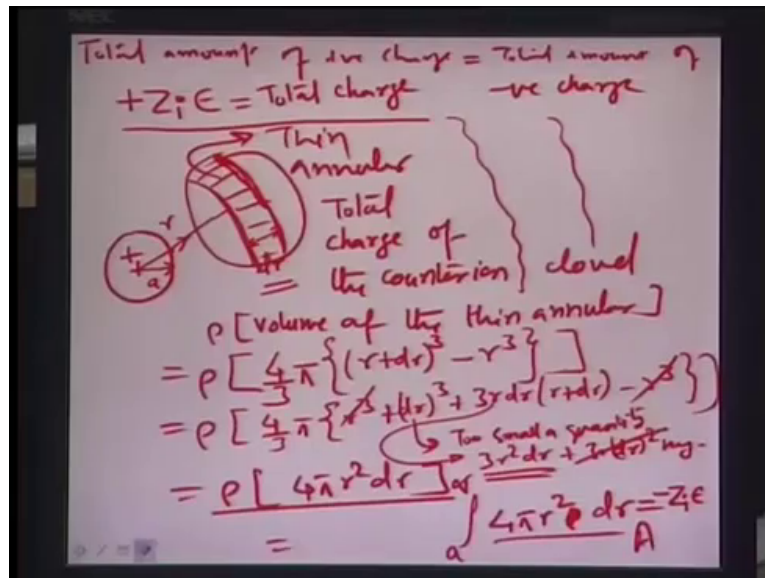 Total amount of +ve charge = Total amount of
+Ziϵ = Total charge -ve charge
Thin
annular
Total
charge of
the counterion cloud
r
+
a
dr
=
ρ [volume of the thin annular]
= ρ [4/3 π {(r+dr)³ - r³}]
= ρ [4/3 π {r³ + (dr)³ + 3rdr(r+dr) - r³}]
Too small a quantity
3r²dr + 3r(dr)²
= ρ [4πr²dr]
= ∫ₐ 4πr²ρ dr = -Ziϵ
A